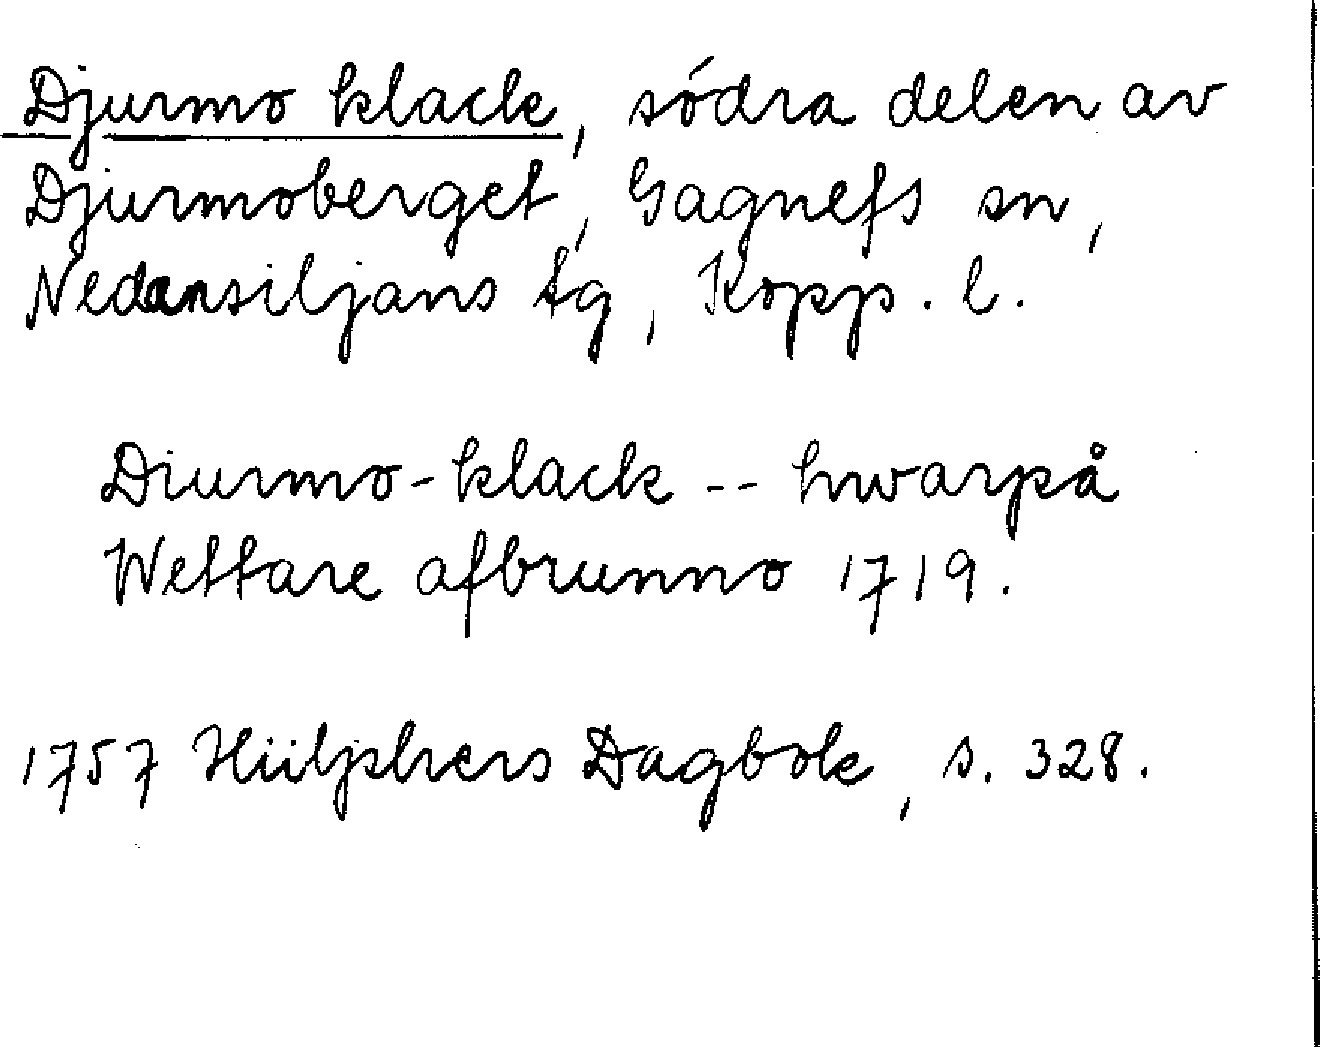 Djurmo klack, södra delen av
Djurmoberget, Gagnefs sn,
Nedansiljans tg, Kopp. l.
Diurmo-klack -- hwarpå
Wettare afbrunno 1719.
1757 Hülphers Dagbok, s. 328.